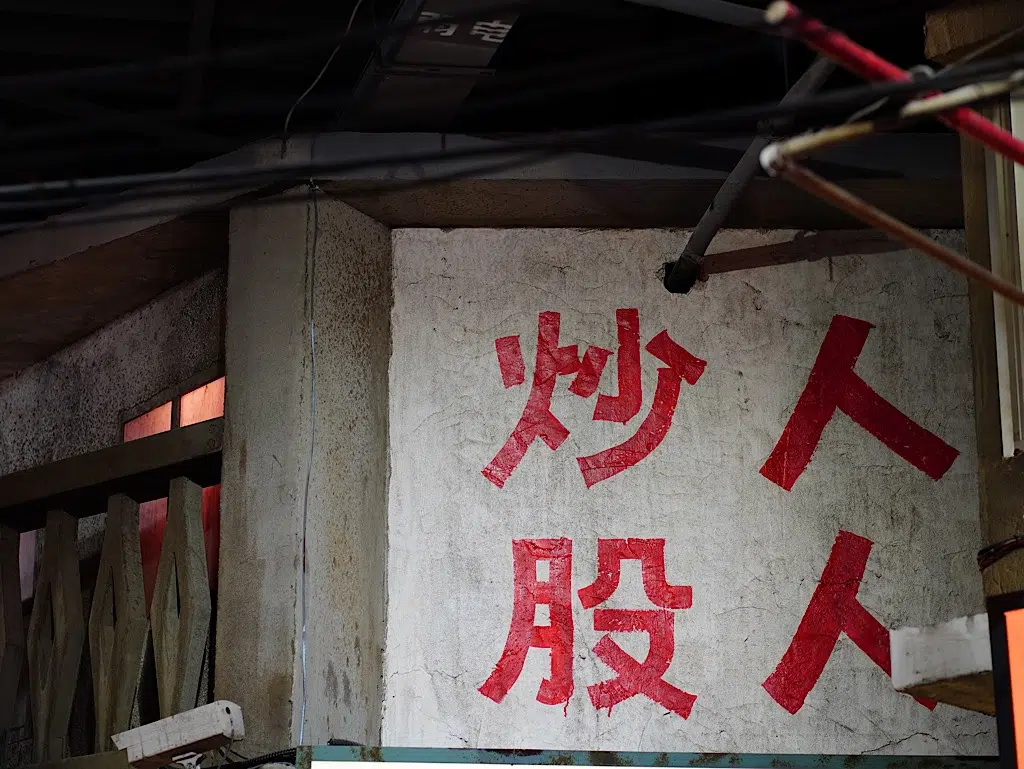 人人
炒股